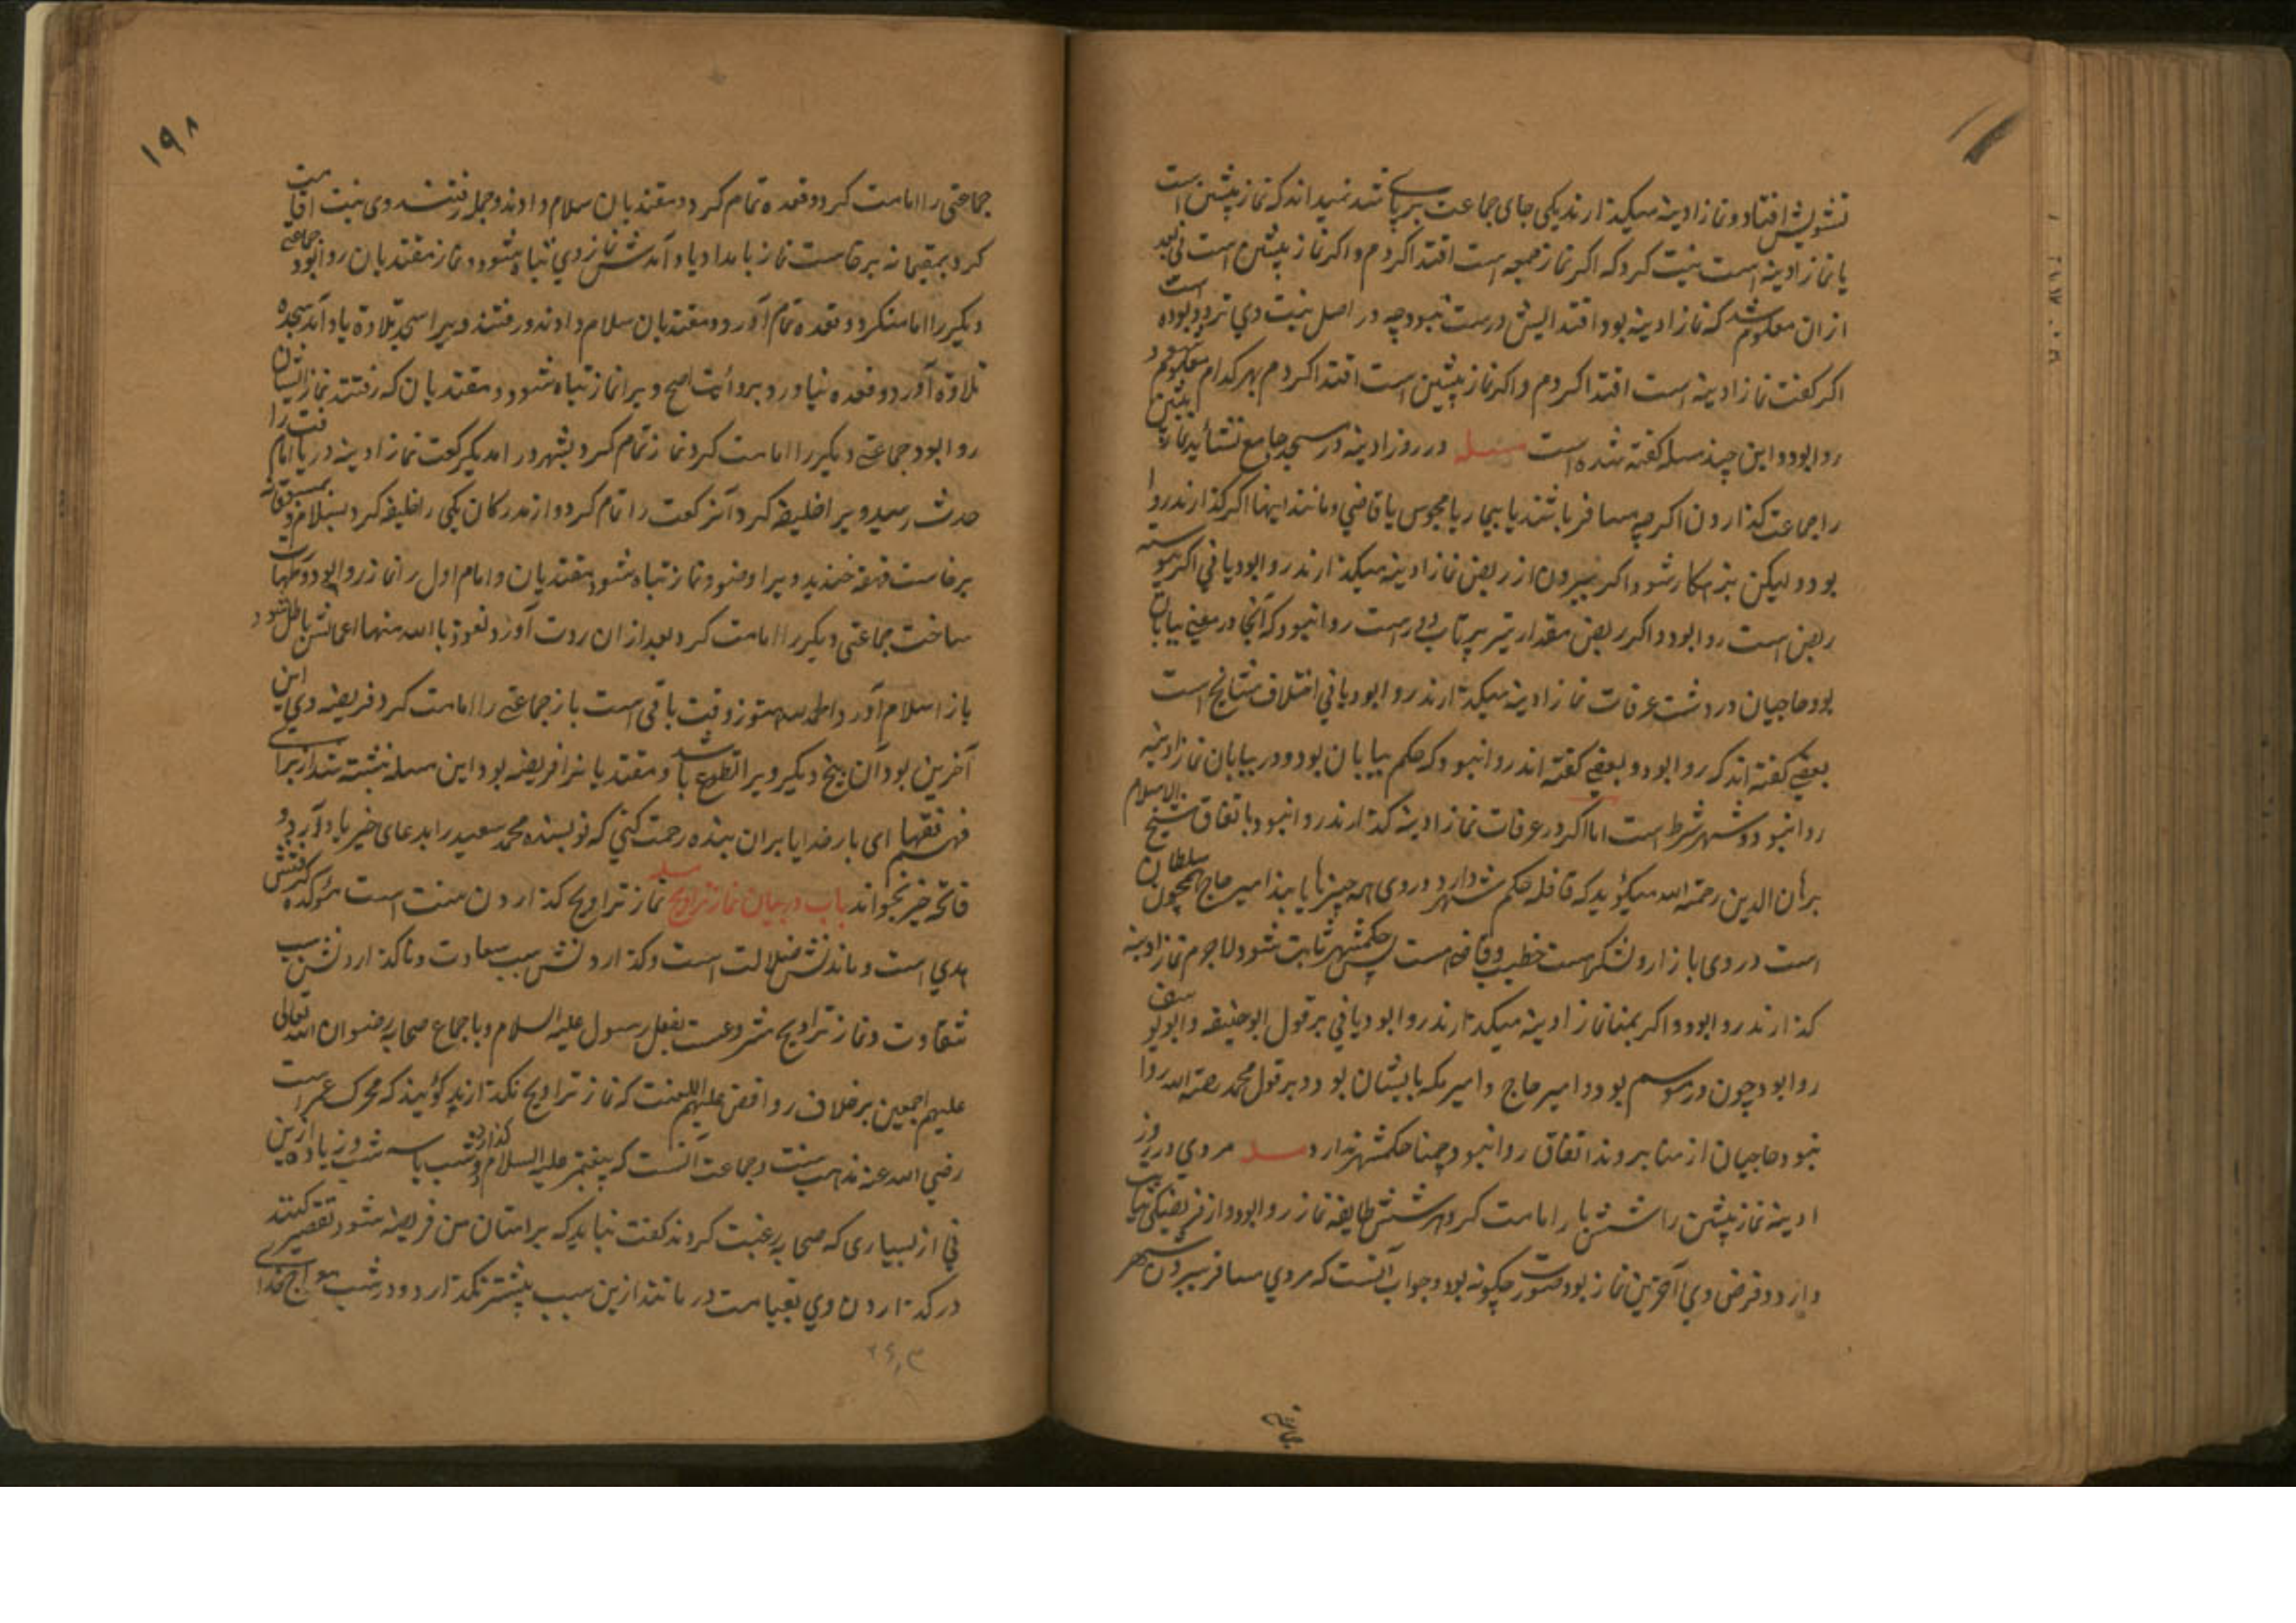 تشویش افتاد و نماز ادینه میکذارند یکی جای جماعت بر پای شد نمیداند که نماز پیشین است
یا نماز ادینه است نیت کرد که اکر نماز جمعه است اقتدا کردم و اکر نماز پیشین است نی بعد
ازان معلوم شد که نماز ادینه بود اقتدایش درست نبود چه در اصل نیت وی تردد بوده است
اکر کفت نماز ادینه است اقتدا کردم و اکر نماز پیشین است اقتدا کردم بهر کدام معلوم شود
روا بود و این چند مسله کفته شده است مسله در روز ادینه در مسجد جامع نشاید نماز پیشین
را جماعت کذاردن اکرچه مسافر باشند یا بیمار یا محبوس یا قاضی و مانند اینها اکر کذارند روا
بود و لیکن بزهکار شود اکر بیرون از ربض نماز ادینه میکذارند روا بود یا نی اکر پیوسته
ربض است روا بود و اکر ربض مقدار تیر پرتاب دور است روا نبود که آنجا در معنی بیابان
بود حاجیان در دشت عرفات نماز ادینه میکذارند روا بود یا نی اختلاف مشایخ است
بعضی کفته اند که روا بود و بعضی کفته اند روا نبود که حکم بیابان بود و در بیابان نماز ادینه
روا نبود و شهر شرط است اما اکر در عرفات نماز ادینه کذارند روا نبود باتفاق شیخ الاسلام
برهان الدین رحمة الله میکوید که قافله حکم شهر دارد و در وی همه چیزها یابند امیر حاج همچون سلطان
است در وی بازار و لشکر است خطیب و قاضی است پس حکم شهر ثابت شود لاجرم نماز ادینه
کذارند روا بود و اکر بمنا نماز ادینه میکذارند روا بود یا نی بر قول ابو حنیفه و ابو یوسف
روا بود چون در موسم بود و امیر حاج و امیر مکه بایشان بود و بر قول محمد رحمة الله روا
نبود حاجیان از منا بروند اتفاق روا نبود چه منا حکم شهر ندارد مسله مردی در روز
ادینه نماز پیشین را شش بار امامت کرد هر شش طایفه نماز روا بود و از فریضکی نهایت
دارد و فرض وی آخرین نماز بود صورت چکونه بود جواب آنست که مردی مسافر بیرون شهر
جماعتی
۱۹۸
جماعتی را امامت کرد و قعده تمام کرد و مقتدیان سلام دادند و جمله رفتند وی نیت اقامت
کرد بمقیمانه برخاست نماز بامداد یاد آمدش نماز وی تباه شود و نماز مقتدیان روا بود جماعتی
دیکر را امامت کرد و قعده تمام آورد و مقتدیان سلام دادند و رفتند ویرا سجده تلاوة یاد آمد سجده
تلاوة آورد و قعده نیاورد بروایت اصح ویرا نماز تباه شود و مقتدیان که رفتند نماز ایشان
روا بود جماعتی دیکر را امامت کرد نماز تمام کرد بشهر درامد یکرکعت نماز ادینه دریافت امام را
حدث رسید ویرا خلیفه کرد آن رکعت را تمام کرد و از مدرکان یکی را خلیفه کرد بسلام و بمسبوقانه
برخاست قهقه خندید ویرا وضو و نماز تباه شود مقتدیان و امام اول را نماز روا بود و طهارت
ساخت جماعتی دیکر را امامت کرد بعد ازان ردت آورد نعوذ باالله منها اعمالش باطل شود
باز اسلام آورد والحمد لله هنوز وقت باقی است باز جماعتی را امامت کرد فریضه وی این
آخرین بود آن پنج دیکر ویرا تطوع باشد و مقتدیانرا فریضه بود این مسله نبشته شد از برای
فهم فقها ای بار خدایا بران بنده رحمت کنی که نویسنده محمد سعید را بدعای خیر یاد آرد و
فاتحه خیر بخواند باب در بیان نماز تراویح مسله نماز تراویح کذاردن سنت است مؤکده کرفتنش
هدی است و ماندنش ضلالت است و کذاردنش سبب سعادت و ناکذاردنش سبب
شقاوت و نماز تراویح مشروعست بفعل رسول علیه السلام و باجماع صحابه رضوان الله تعالی
علیهم اجمعین بر خلاف روافض علیهم اللعنت که نماز تراویح نکذارند کویند که محرک عمر است
رضی الله عنه مذهب سنت و جماعت آنست که پیغمبر علیه السلام دو شب یا سه شب کذارده و زیاده ازین
نی از بسیاری که صحابه رغبت کردند کفت نباید که بر امتان من فریضه شود تقصیر کنند
در کذاردن وی بقیامت درمانند ازین سبب بیشتر نکذارد و در شب معراج خدای